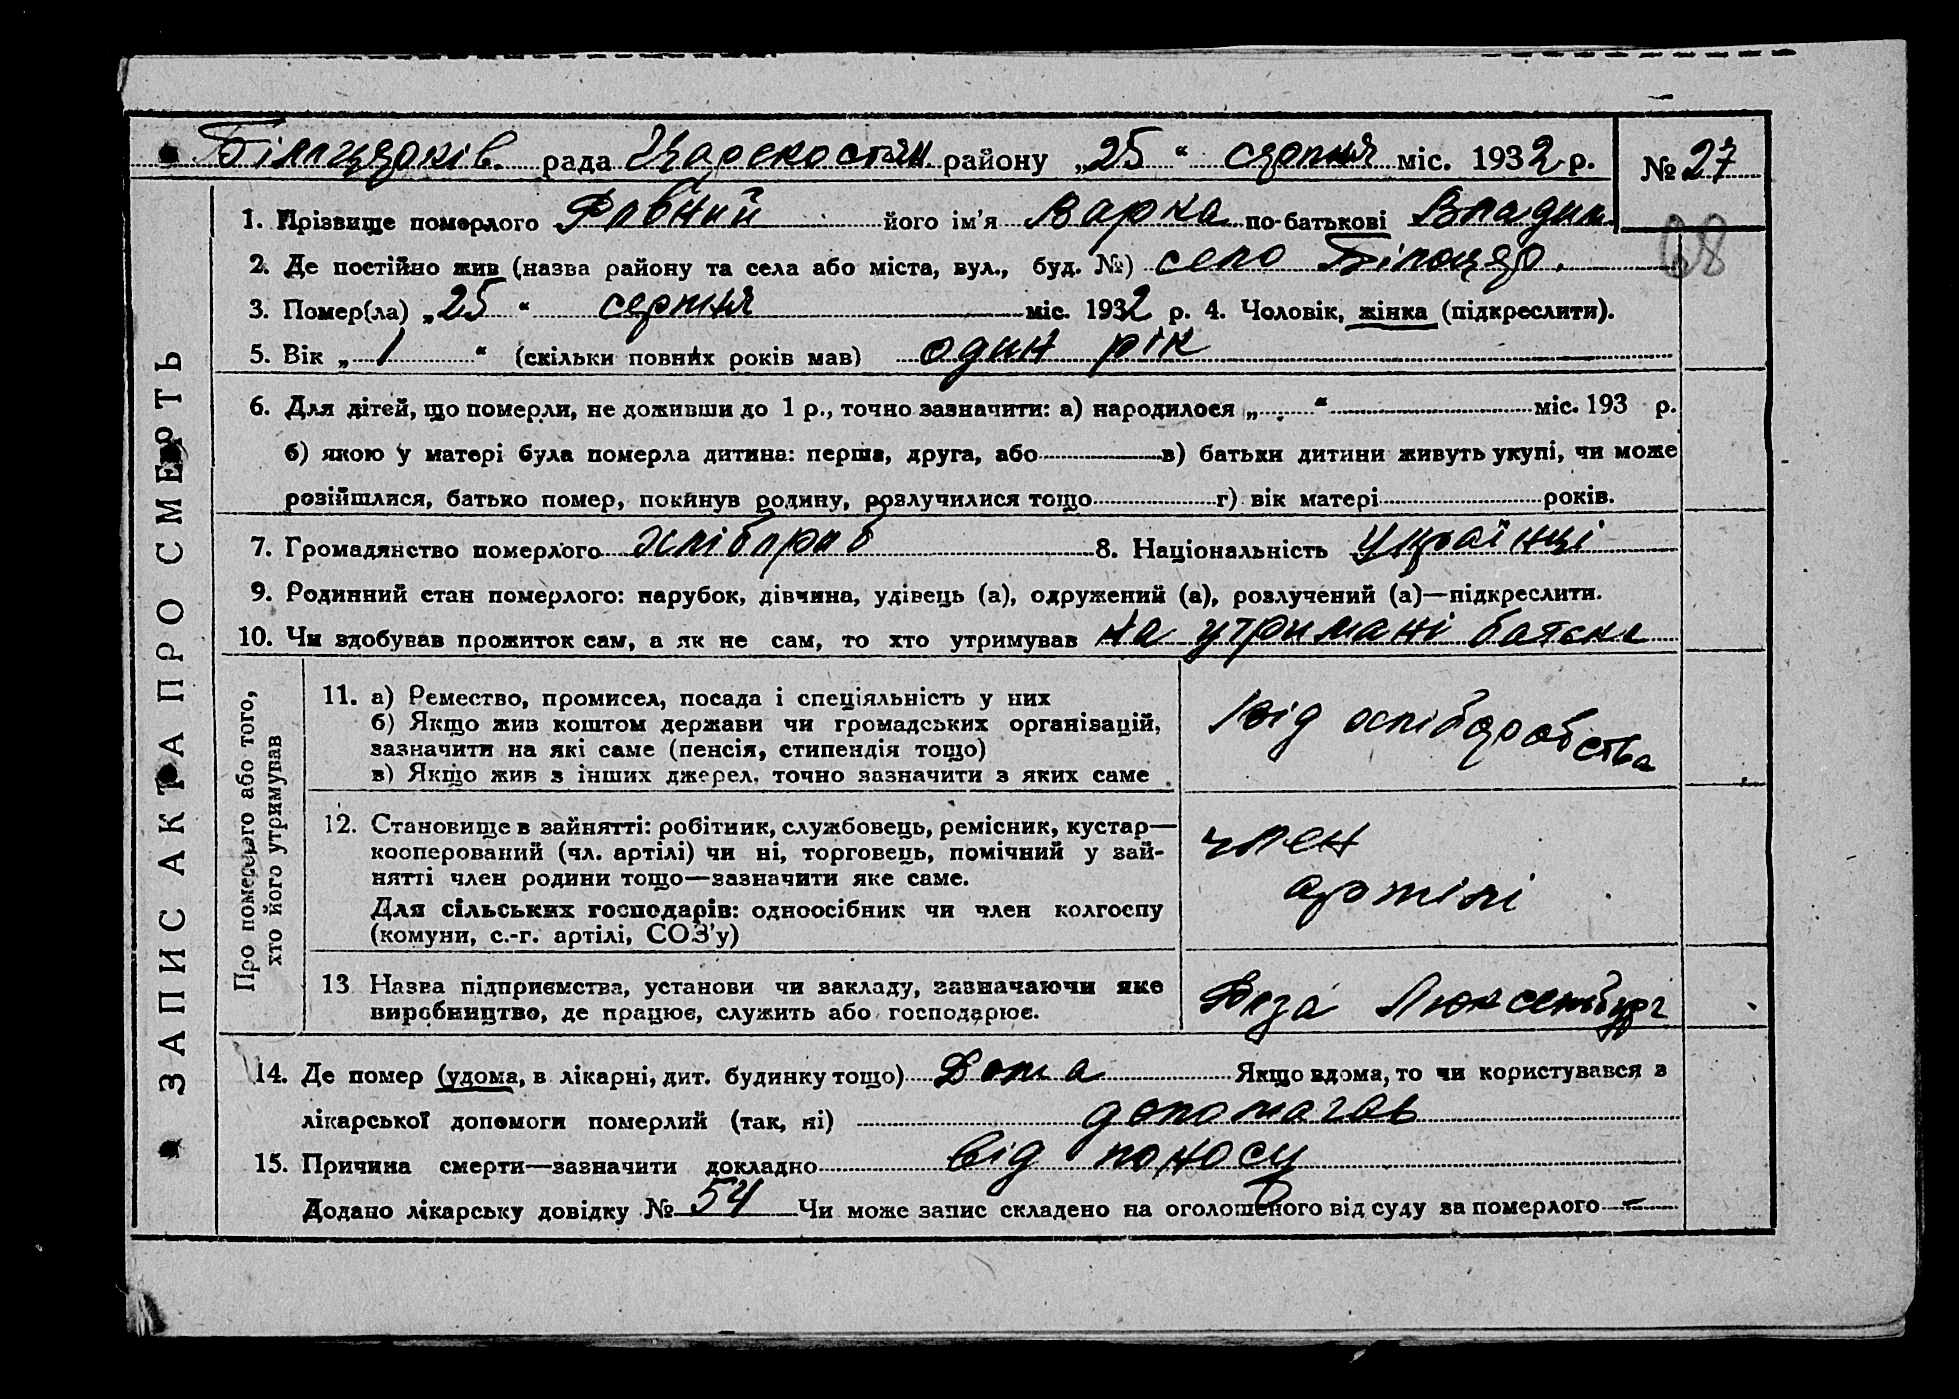 рада району „25“ серпня міс. 1932 р. № 27
1. Прізвище померлого Рівний його ім'я Варка по-батькові Владим
68
2. Де постійно жив (назва району та села або міста, вул., буд. №) село
3. Помер(ла) „25“ серпня міс. 1932 р. 4. Чоловік, жінка (підкреслити).
5. Вік „1“ (скільки повних років мав) один рік
6. Для дітей, що померли, не доживши до 1 р., точно зазначити: а) народилося „ “ міс. 193 р.
б) якою у матері була померла дитина: перша, друга, або в) батьки дитини живуть укупі, чи може
розійшлися, батько помер, покинув родину, розлучилися тощо г) вік матері років.
7. Громадянство померлого хлібороб 8. Національність Українці
9. Родинний стан померлого: парубок, дівчина, удівець (а), одружений (а), розлучений (а)—підкреслити.
10. Чи здобував прожиток сам, а як не сам, то хто утримував на утримані батьки
ЗАПИС АКТА ПРО СМЕРТЬ
Про померлого або того,
хто його утримував
11. а) Ремество, промисел, посада і спеціяльність у них
б) Якщо жив коштом держави чи громадських організацій,
зазначити на які саме (пенсія, стипендія тощо)
в) Якщо жив з інших джерел, точно зазначити з яких саме
від хліборобства
12. Становище в зайнятті: робітник, службовець, ремісник, кустар—
кооперований (чл. артілі) чи ні, торговець, помічний у зай-
нятті член родини тощо—зазначити яке саме.
Для сільських господарів: одноосібник чи член колгоспу
(комуни, с.-г. артілі, СОЗ'у)
член
артілі
13 Назва підприємства, установи чи закладу, зазначаючи яке
виробництво, де працює, служить або господарює.
Роза Люксембург
14. Де помер (удома, в лікарні, дит. будинку тощо) Дома Якщо вдома, то чи користувався з
лікарської допомоги померлий (так, ні) допомагав
15. Причина смерти—зазначити докладно від поносу
Додано лікарську довідку № 54 Чи може запис складено на оголошеного від суду за померлого —